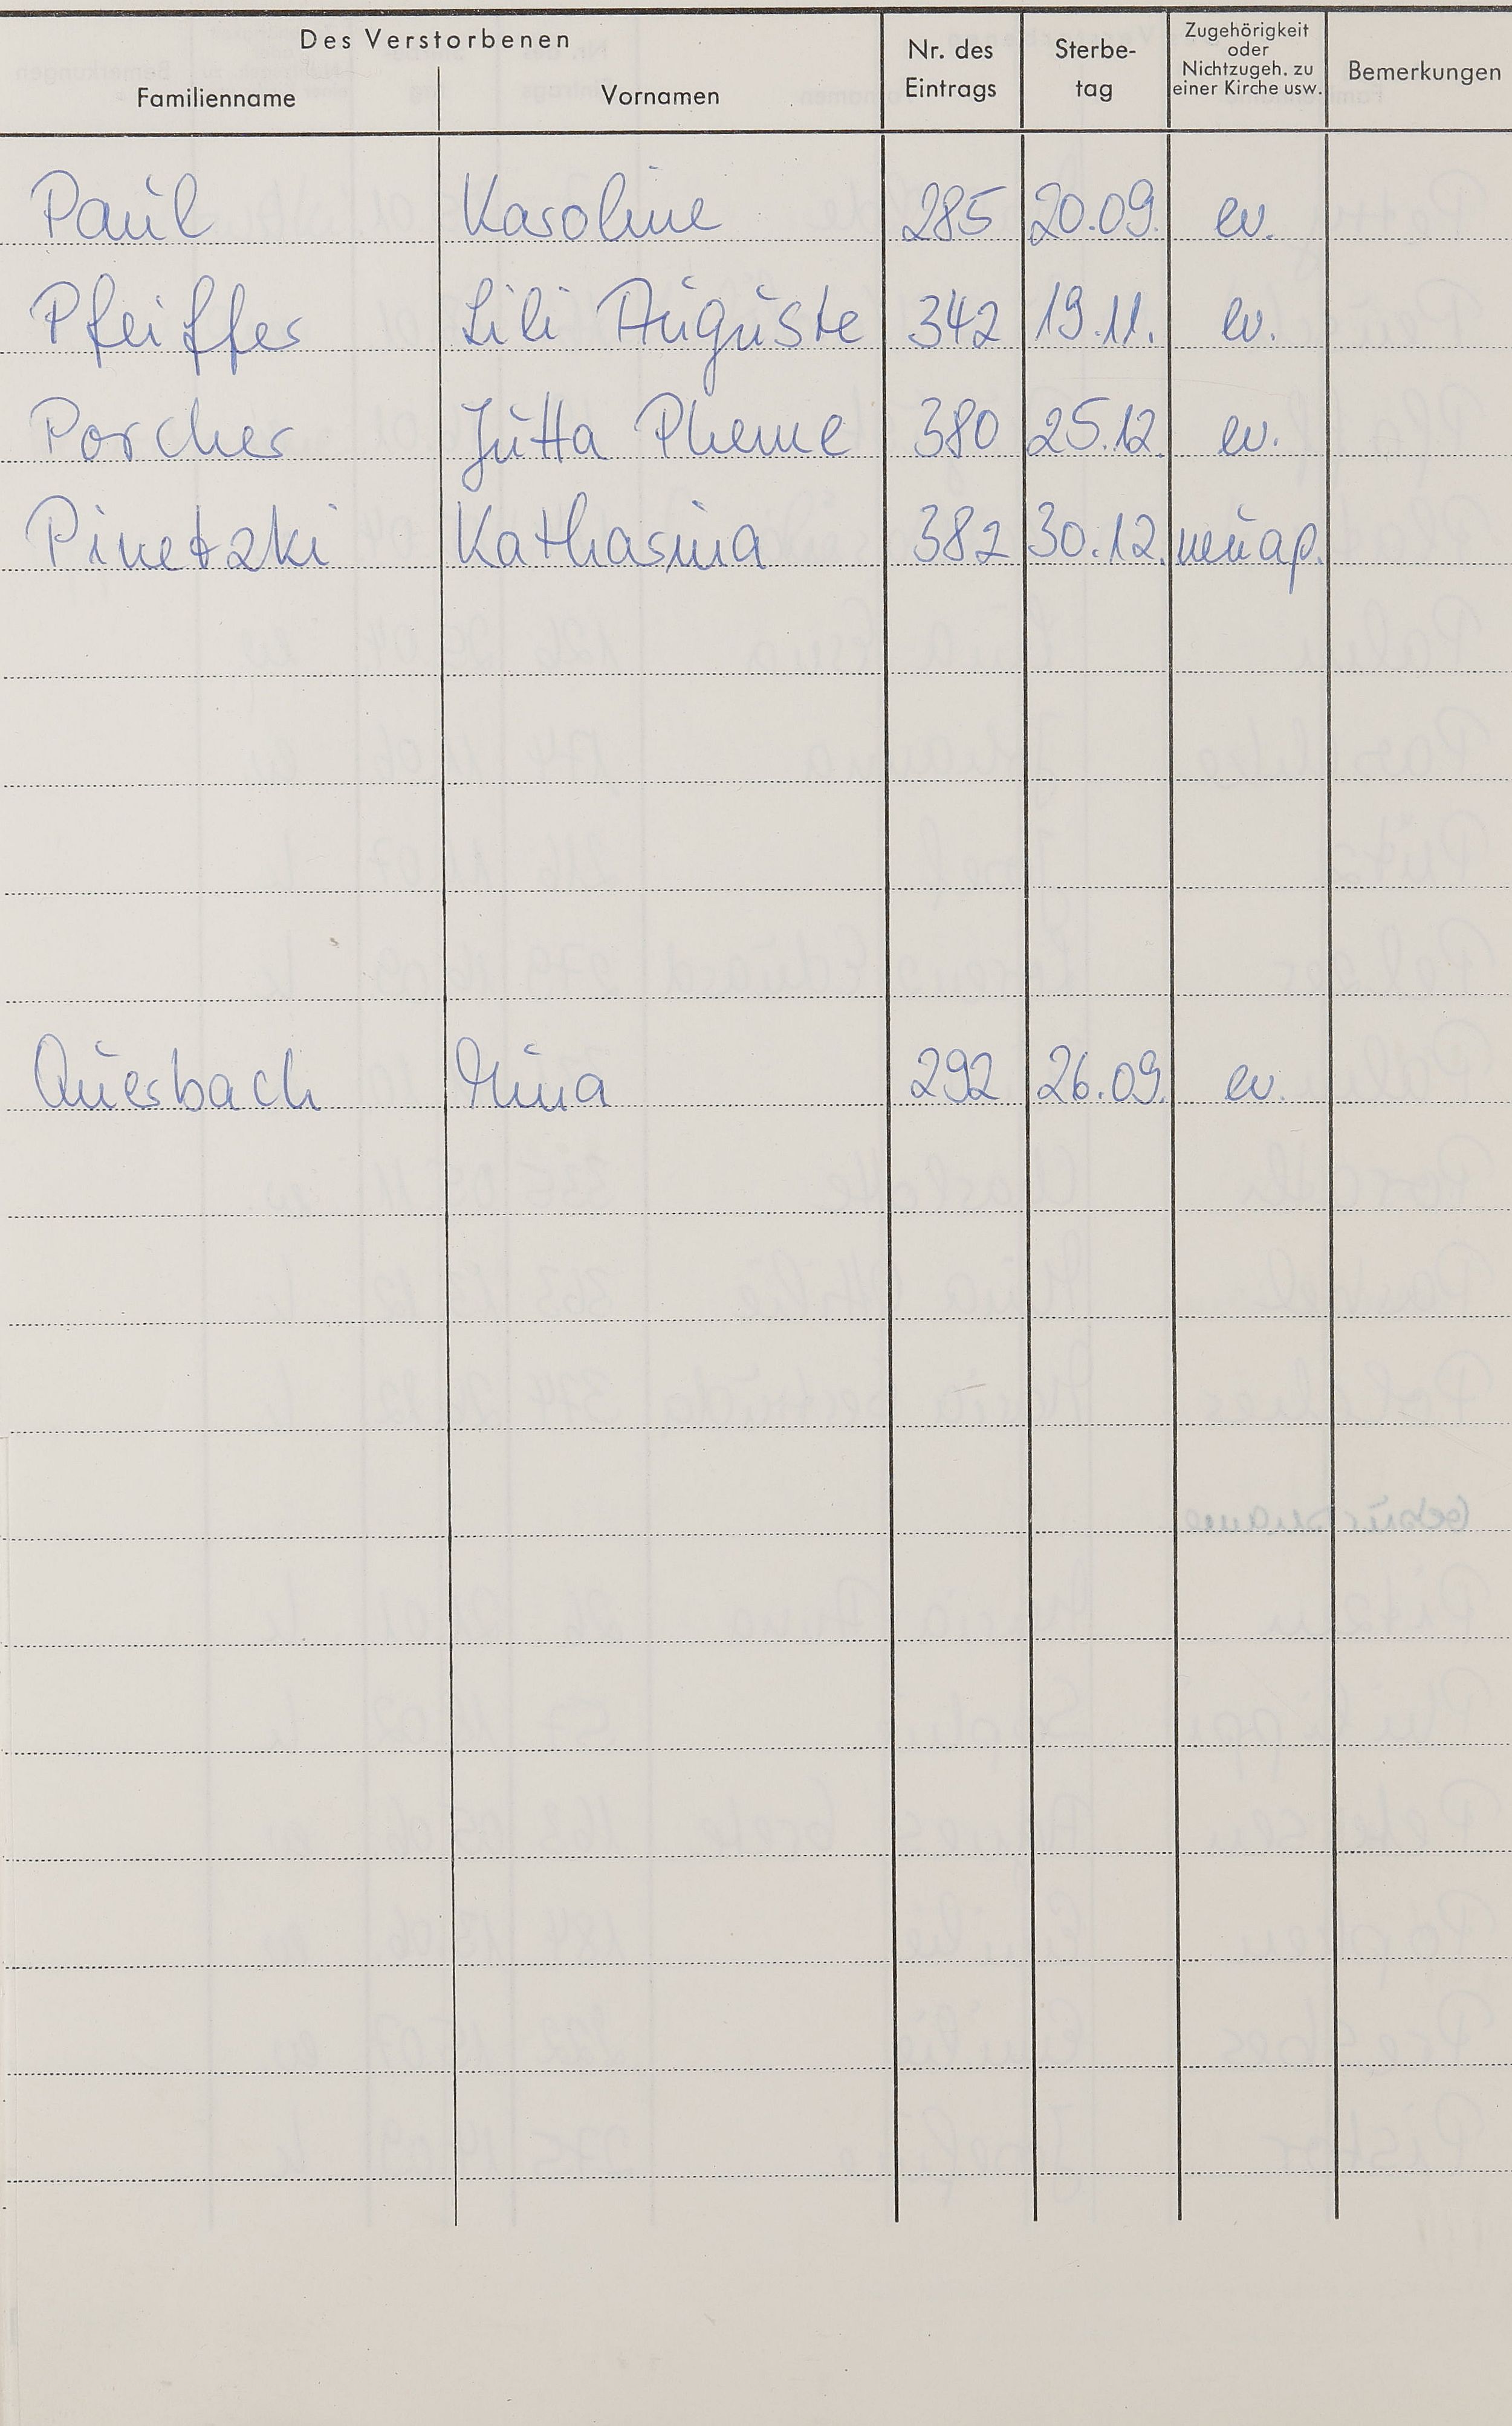 Des Verstorbenen
Familienname Vornamen Nr. des Eintrags Sterbe-tag Zugehörigkeit oder Nichtzugeh. zu einer Kirche usw. Bemerkungen
Paul Karoline 285 20.09. ev.
Pfeiffer Lili Auguste 342 19.11. ev.
Porcher Jutta Pheme 380 25.12. ev.
Pinetzki Katharina 382 30.12. neuap.
Querbach Mina 292 26.09. ev.